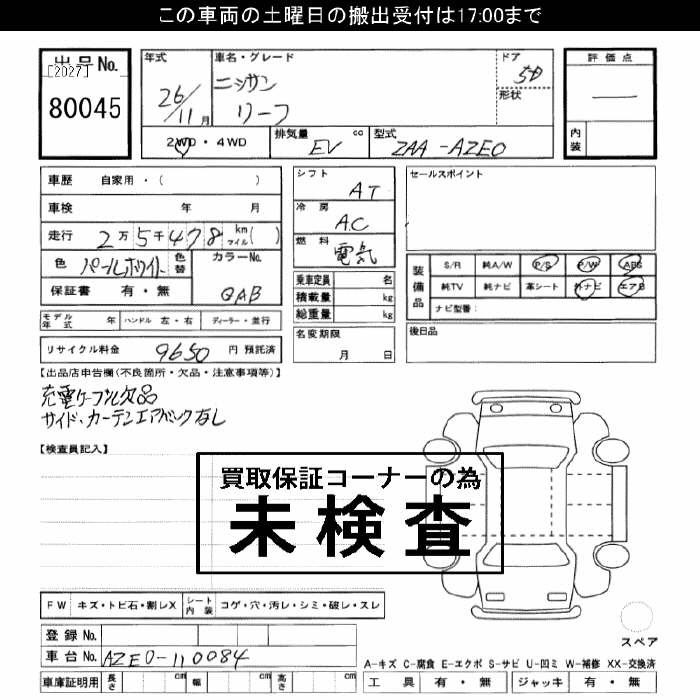 この車両の土曜日の搬出受付は17:00まで
出品No.
[2027]
80045
年式
26/11月
車名・グレード
ニッサン
リーフ
ドア
5D
形状
評価点
—
内装
2WD・4WD
排気量 cc
EV
型式
ZAA-AZE0
車歴 自家用・( )
車検 年 月
走行 2万5千478 km マイル( )
色 パールホワイト 色替
カラーNo.
QAB
保証書 有・無
シフト
AT
冷房
AC
燃料
電気
乗車定員 名
積載量 kg
総重量 kg
名変期限
月 日
セールスポイント
装備品
S/R 純A/W P/S P/W ABS
純TV 純ナビ 革シート 外ナビ エアB
ナビ型番:
後日品
モデル年式 年 ハンドル 左・右 ディーラー・並行
リサイクル料金 9650 円 預託済
【出品店申告欄(不良箇所・欠品・注意事項等)】
充電ケーブル欠品
サイド・カーテンエアバックなし
【検査員記入】
買取保証コーナーの為
未検査
FW キズ・トビ石・割レX シート内装 コゲ・穴・汚レ・シミ・破レ・スレ
登録No.
車台No. AZE0-110084
車庫証明用 長さ cm 幅 cm 高さ cm
スペア
A-キズ C-腐食 E-エクボ S-サビ U-凹ミ W-補修 XX-交換済
工具 有・無 ジャッキ 有・無